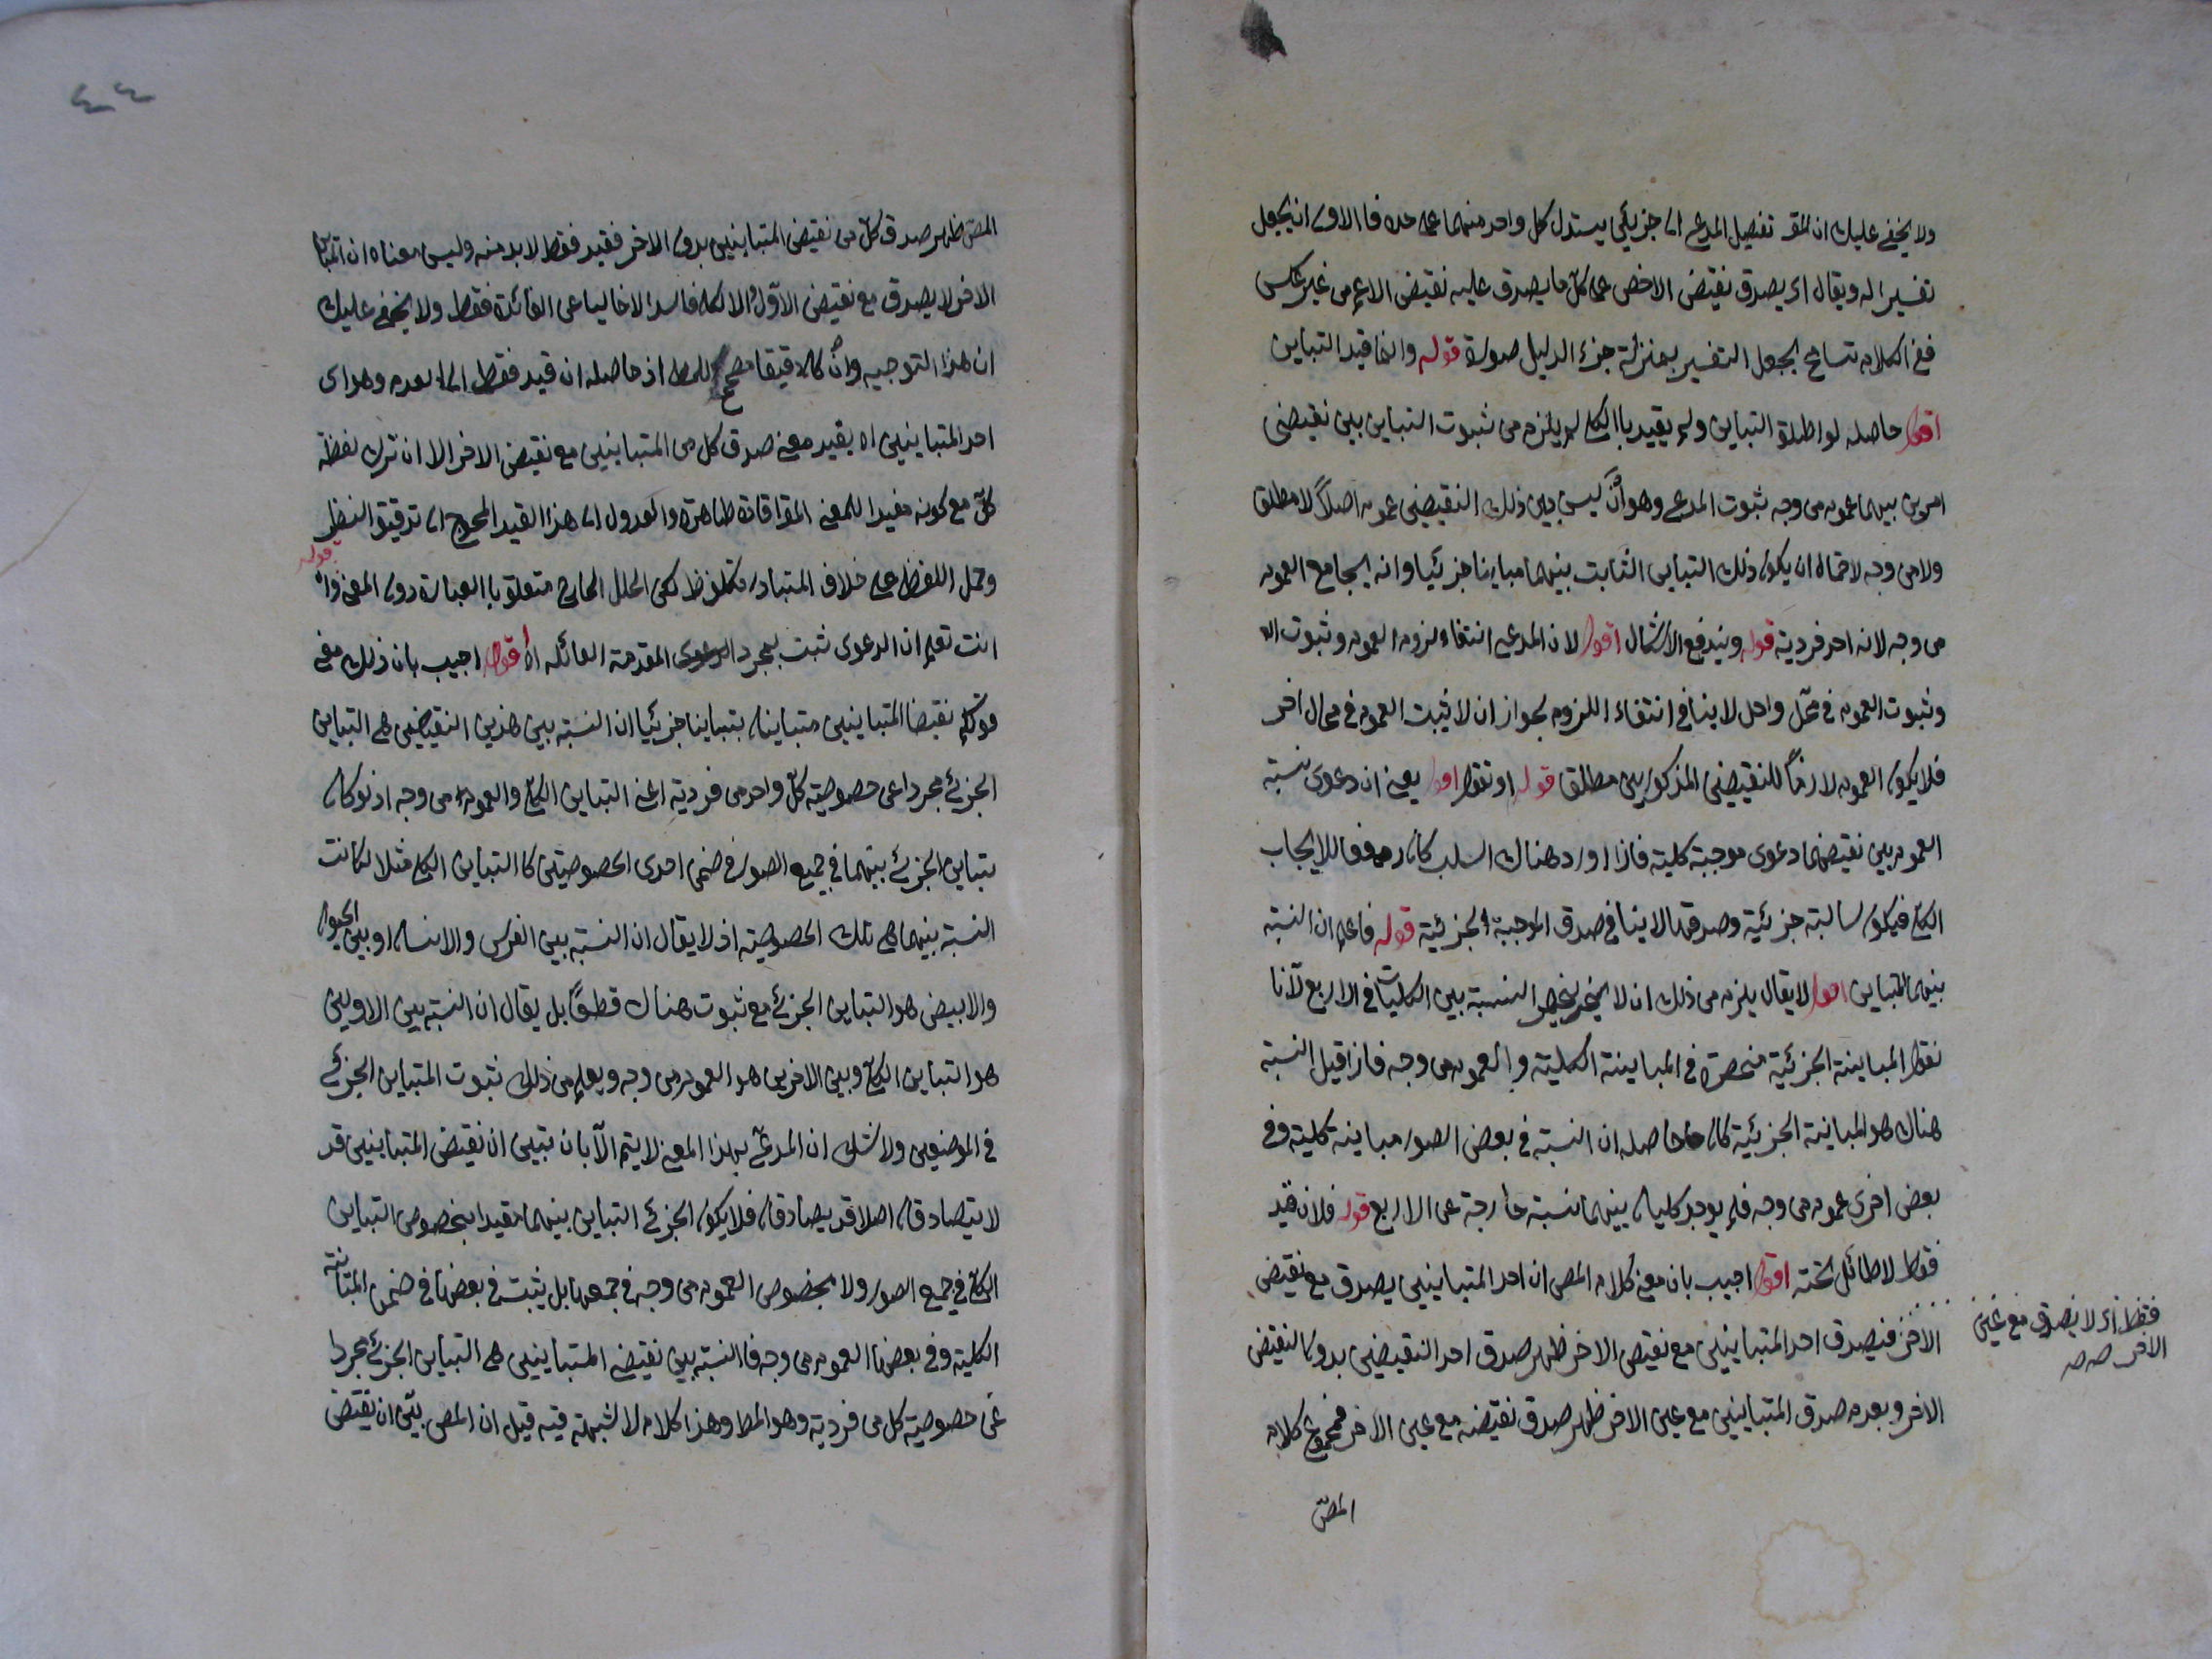 ولا يخفى عليك ان المقـ تفصيل المدعى الى جزئي يستدل كل واحد منهما على حده فالاولى ان يجعل
تفسيرا له ويقال اى يصدق نقيض الاخص على كل ما يصدق عليه نقيض الاعم من غير عكس
ففى الكلام تسامح يجعل التفسير بمنزلة جزء الدليل صورة قوله وانما قيد التباين
اقول حاصله لو اطلق التباين ولم يقيد باالكلى لم يلزم من ثبوت التباين بين نقيضى
امرين بينهما عموم من وجه ثبوت المدعى وهو أنّ ليس بين ذلك النقيضين عموم اصلاً لا مطلق
ولا من وجه لاحتمال ان يكون ذلك التباين الثابت بينهما مباينا جزئيا وانه يجامع العموم
من وجه لانه احد فرديه قوله ويندفع الاشكال اقول لان المدعى انتفاء لزوم العموم وثبوت الا
وثبوت العموم فى محلّ واحل لا ينافى انتفاء اللزوم لجواز ان لا يثبت العموم فى محال اخر
فلا يكون العموم لازماً للنقيضين المذكورين مطلق قوله او نقول اقول يعنى ان دعوى نسبة
العموم بين نقيضهما دعوى موجبة كلية فاذا اورد هناك السلب كان رفعا للايجاب
الكلى فيكون سالبة جزئية وصدقها لا ينافى صدق الموجبة الجزئية قوله فاعلم ان النسبة
بينهما التباين اقول لا يقال يلزم من ذلك ان لا ينحصر النسبة بين الكليات فى الاربع لأنا
نقول المباينة الجزئية منحصرة فى المباينة الكلية والعموم من وجه فاذا قيل النسبة
هناك هو المباينة الجزئية كان حاصله ان النسبة فى بعض الصور مباينة كلية وفى
بعض اخرى عموم من وجه فلم يوجد كليان بينهما نسبة خارجة عن الاربع قوله فلان قيد
فقط لا طائل تحته اقول اجيب بان معنى كلام المص ان احد المتباينين يصدق مع نقيض
الاخر فيصدق احد المتباينين مع نقيض الاخر ظهر صدق احد النقيضين بدون النقيض
الاخر وبعدم صدق المتباينين مع عين الاخر ظهر صدق نقيضه مع عين الاخر فمجموع كلام
المصّ
فقط اى لا يصدق مع عين
الاخر صه صه
٤٤
المصّ ظهر صدق كلّ من نقيضى المتباينين بدون الاخر فقيد فقط لابد منه وليس معناه ان المتباين
الاخر لا يصدق مع نقيض الاوّل والا لكان فاسدا لا خاليا عن الفائدة فقط ولا يخفى عليك
ان هذا التوجيه وانْ كان دقيقا مصحح للمط اذ حاصله ان قيد فقط الى العدم وهو اى
احد المتباينين اه يقيد معنى صدق كل من المتباينين مع نقيض الاخر الا ان ترك لفظة
كلّ مع كونه مفيدا للمعنى المقـ افادة ظاهرة والعدول الى هذا القيد المحوج الى تدقيق النظر
وحمل اللفظ على خلاف المتبادر لكن الخلل الخارج متعلق باالعبارة دون المعنى قوله وا
انت تعلم ان الدعوى تثبت بمجرد المقدمة القائله اه اقول اجيب بان ذلك معنى
قولكم نقيضا المتباينين متباينان تباينا جزئيا ان النسبة بين هذين النقيضين هى التباين
الجزئى مجردا عن خصوصية كلّ واحد من فرديه اعنى التباين الكلى والعموم من وجه اذ لو كان
تباين الجزئى بينهما فى جميع الصور فى ضمن احدى الخصوصيتين كا التباين الكلى مثلا لكانت
النسبة بينهما هى تلك الخصوصية اذ لا يقال ان النسبة بين الفرس والانسان او بين الحيوان
والابيض هو التباين الجزئى مع ثبوت هناك قطعًا بل يقال ان النسبة بين الاولين
هو التباين الكلى وبين الاخرين هو العموم من وجه ويعلم من ذلك ثبوت المتباين الجزئى
فى الموضعين ولا شك ان المدعى بهذا المعنى لا يتم الّا بان تبين ان نقيض المتباينين قد
لا يتصادقان اصلا قد يصادقان فلا يكون الجزئى التباين بينهما مقيدا بخصوص التباين
الكلى فى جميع الصور ولا بخصوص العموم من وجه فى جمعها بل يثبت فى بعضها فى ضمن المباينة
الكلية وفى بعضها العموم من وجه فاالنسبة بين نقيضى المتباينين هى التباين الجزئى مجردا
عن خصوصية كل من فرديه وهو المط وهذا كلام لا شبهة فيه قيل ان المص بيّن ان نقيض